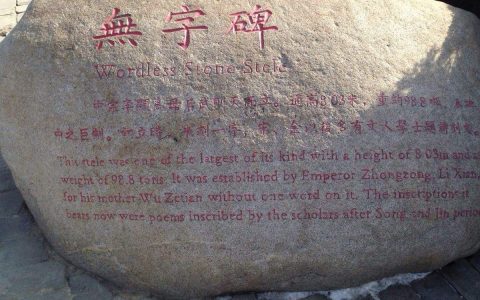 無字碑
Wordless Stone Stele
中宗李顯為母后武則天所立。通高8.03米，重約98.8噸，為
中之巨制。初立時，未刻一字，宋、金以後多有文人學士題詩刻文。
This stele was one of the largest of its kind with a height of 8.03m and a
weight of 98.8 tons. It was established by Emperor Zhongzong, Li Xian,
for his mother Wu Zetian without one word on it. The inscriptions it
bears now were poems inscribed by the scholars after Song and Jin period